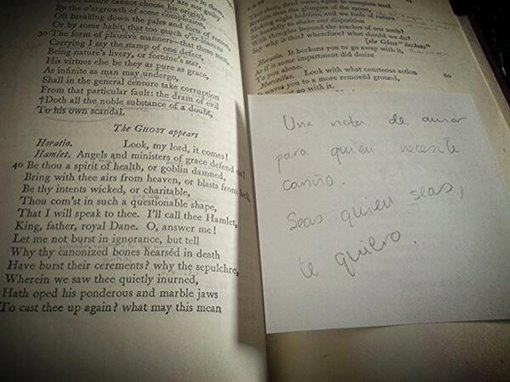 nature cannot choose his origin),
By the o'ergrowth of some complexion,
Oft breaking down the pales and forts of reason,
Or by some habit, that too much o'er-leavens
30 The form of plausive manners—that these men,
Carrying I say the stamp of one defect,
Being nature's livery, or fortune's star,
His virtues else be they as pure as grace,
As infinite as man may undergo,
Shall in the general censure take corruption
From that particular fault: the dram of evil
†Doth all the noble substance of a doubt,
To his own scandal.
The GHOST appears
Horatio. Look, my lord, it comes!
Hamlet. Angels and ministers of grace defend us!
40 Be thou a spirit of health, or goblin damned,
Bring with thee airs from heaven, or blasts from hell,
Be thy intents wicked, or charitable,
Thou com'st in such a questionable shape,
That I will speak to thee. I'll call thee Hamlet,
King, father, royal Dane. O, answer me!
Let me not burst in ignorance, but tell
Why thy canonized bones hearséd in death
Have burst their cerements? why the sepulchre,
Wherein we saw thee quietly inurned,
Hath oped his ponderous and marble jaws
To cast thee up again? what may this mean
That thou, dead corse, again in complete steel
night hideous, and we fools of nature
to shake our disposition
thoughts beyond the reaches of our souls?
Say why is this? wherefore? what should we do?
[the Ghost 'beckons'
Horatio. It beckons you to go away with it,
As if it some impartment did desire
To you alone.
Marcellus. Look with what courteous action 60
waves you to a more removed ground,
go with it.
Una nota de amor
para quien necesite
cariño.
Seas quien seas,
te quiero.